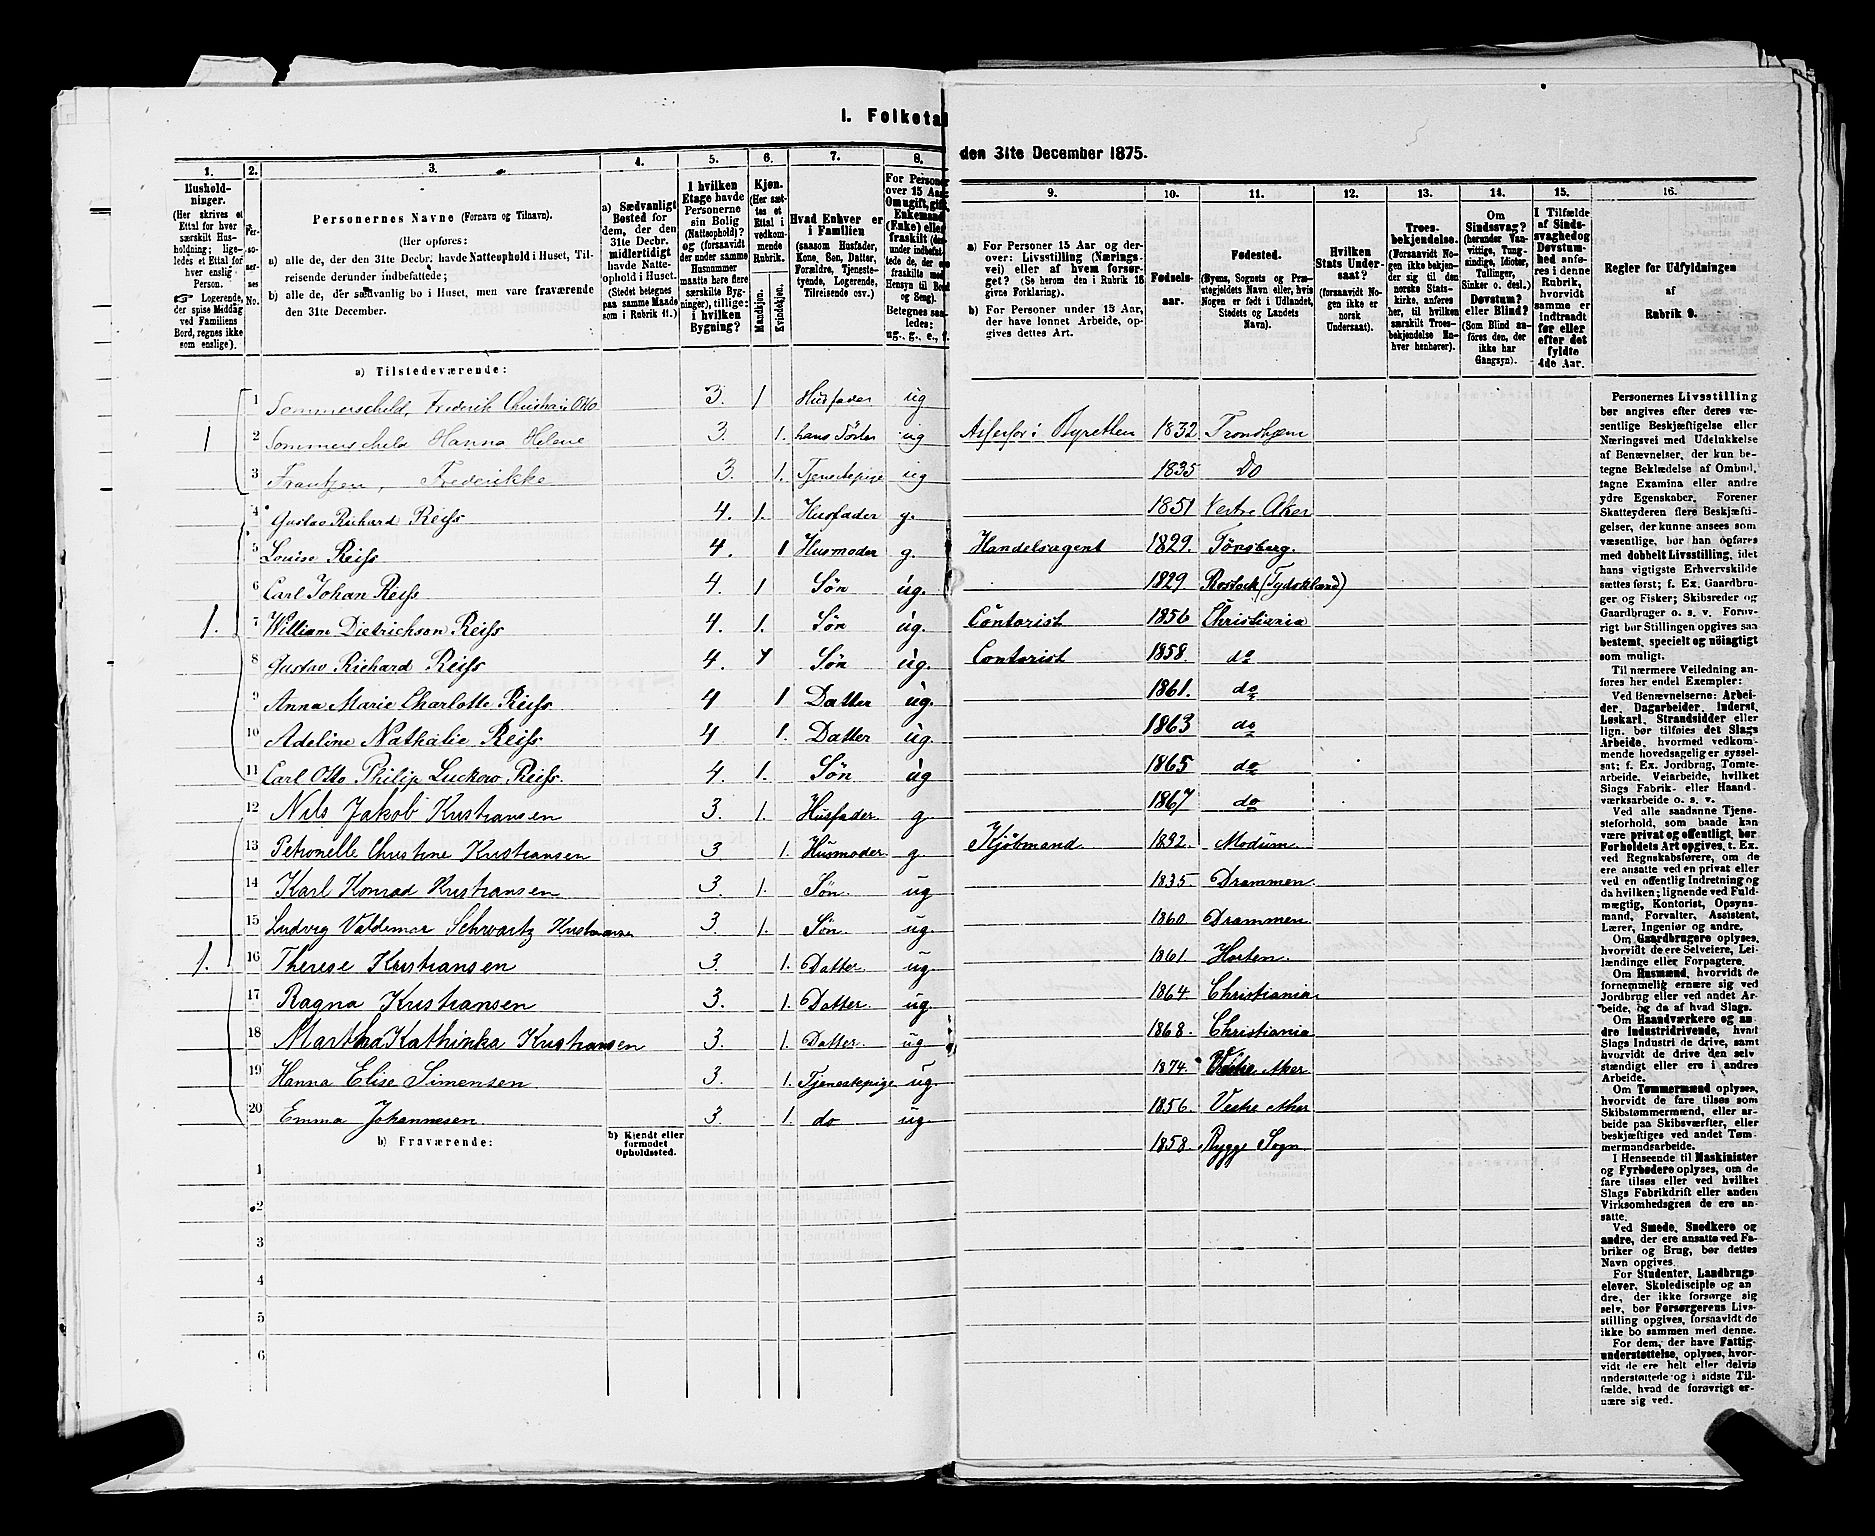 I. Folketal
den 31te December 1875.
1. 2. 3. 4. 5. 6. 7. 8.
Hushold-
ninger.
(Her skrives et
Ettal for hver
særskilt Hus-
holdning; lige-
ledes et Ettal for
hver enslig
Person.
☞ Logerende,
der spise Middag
ved Familiens
Bord, regnes ikke
som enslige).
Personernes No.
Personernes Navne (Fornavn og Tilnavn).
(Her opføres:
a) alle de, der den 31te Decbr. havde Natteophold i Huset, Til-
reisende derunder indbefattede;
b) alle de, der sædvanlig bo i Huset, men vare fraværende
den 31te December.
a) Sædvanligt
Bosted for
dem, der den
31te Decbr.
midlertidigt
havde Natte-
ophold i Huset.
(Stedet betegnes
paa samme Maade,
som i Rubrik 11.)
I hvilken
Etage havde
Personerne
sin Bolig
(Natteophold)?
og (forsaavidt
der under samme
Husnummer
maatte høre flere
særskilte Byg-
ninger), tillige:
i hvilken
Bygning?
Kjøn.
(Her sæt-
tes et
Ettal i
vedkom-
mende
Rubrik.
Mandkjøn.
Kvindekjøn.
Hvad Enhver er
i Familien
(saasom Husfader,
Kone, Søn, Datter,
Forældre, Tjeneste-
tyende, Logerende,
Tilreisende osv.)
For Personer
over 15 Aar:
Om ugift, gift,
Enkemand
(Enke) eller
fraskilt (der-
under indbefat-
tede de, der ere
fraskilte med
Hensyn til Bord
og Seng).
Betegnes saa-
ledes:
ug., g., e., f.
a) Tilstedeværende:
1 Sommerschild, Frederik Christian Otto 3. 1 Husfader ug
1 2 Sommerschild Hanna Helene 3. 1. hans Søster ug
3 Frantzen, Frederikke 3. 1. Tjenestepige ug
4 Gustav Richard Reiss 4. 1. Husfader g.
5 Louise Reiss 4. 1 Husmoder g.
6 Carl Johan Reiss 4. 1 Søn ug.
1. 7 William Dietrichson Reiss 4. 1. Søn ug.
8 Gustav Richard Reiss 4. 1 Søn ug.
9 Anna Marie Charlotte Reiss 4 1 Datter ug.
10 Adeline Nathalie Reiss. 4 1. Datter ug.
11 Carl Otto Philip Luckow Reiss. 4. 1. Søn ug
12 Nils Jakob Kristiansen 3. 1. Husfader g.
13 Petronelle Christine Kristiansen 3 1. Husmoder. g.
14 Karl Konrad Kristiansen 3. 1. Søn. ug
15 Ludvig Valdemar Schwartz Kristiansen 3. 1. Søn. ug
1. 16 Therese Kristiansen 3. 1. Datter ug
17 Ragna Kristiansen 3. 1. Datter. ug
18 Martha Kathinka Kristiansen 3. 1. Datter. ug
19 Hanna Elise Simensen 3. 1. Tjenestepige ug.
20 Emma Johannesen 3. 1. do ug.
b) Fraværende:
b) Kjendt eller
formodet
Opholdssted.
1
2
3
4
5
6
9. 10. 11. 12. 13. 14. 15. 16.
a) For Personer 15 Aar og der-
over: Livsstilling (Nærings-
vei) eller af hvem forsør-
get? (Se herom den i Rubrik 16
givne Forklaring).
b) For Personer under 15 Aar,
der have lønnet Arbeide, op-
gives dettes Art.
Fødsels-
aar.
Fødested.
(Byens, Sognets og Præ-
stegjeldets Navn eller, hvis
Nogen er født i Udlandet,
Stedets og Landets
Navn).
Hvilken
Stats Under-
saat?
(forsaavidt No-
gen ikke er
norsk
Undersaat).
Troes-
bekjendelse.
(Forsaavidt No-
gen ikke bekjen-
der sig til den
norske Stats-
kirke, anføres
her, til hvilken
særskilt Troes-
bekjendelse En-
hver henhører).
Om
Sindssvag?
(herunder Van-
vittige, Tung-
sindige, Idioter,
Tullinger,
Sinker o. desl.)
Døvstum?
eller Blind?
(Som Blind an-
føres den, der
ikke har
Gangsyn).
I Tilfælde
af Sinds-
svaghed og
Døvstum-
hed anfø-
res i denne
Rubrik,
hvorvidt
samme er
indtraadt
før eller
efter det
fyldte
4de Aar.
Regler for Udfyldningen
af
Rubrik 9.
Byretten 1832 Trondhjem
1835 Do
1851 Vestre Aker
Handelsagent 1829. Tønsberg.
1829 Rostock (Tydskland)
Contorist 1856 Christiania
Contorist 1858. do
1861. do
1863 do
1865 do
1867 do
Kjøbmand 1832. Modum.
1835. Drammen.
1860 Drammen
1861 Horten.
1864. Christiania.
1868. Christiania
1874. Vestre Aker
1856. Vestre Aker
1858. Rygge Sogn
Personernes Livsstilling
bør angives efter deres væ-
sentlige Beskjæftigelse eller
Næringsvei med Udelukkelse
af Benævnelser, der kun be-
tegne Beklædelse af Ombud,
tagne Examina eller andre
ydre Egenskaber. Forener
Skatteyderen flere Beskjæfti-
gelser, der kunne ansees som
væsentlige, bør han opføres
med dobbelt Livsstilling, idet
hans vigtigste Erhvervskilde
sættes først; f. Ex. Gaardbru-
ger og Fisker; Skibsreder og
Gaardbruger o. s. v. Forøv-
rigt bør Stillingen opgives saa
bestemt, specielt og nöiagtigt
som muligt.
Til nærmere Veiledning an-
føres her endel Exempler:
Ved Benævnelserne: Arbei-
der, Dagarbeider, Inderst,
Løskarl, Strandsidder eller
lign. bør tilføies det Slags
Arbeide, hvormed vedkom-
mende hovedsagelig er syssel-
sat; f. Ex. Jordbrug, Tømte-
arbeide, Veiarbeide, hvilket
Slags Fabrik- eller Haand-
værksarbeide o. s. v.
Ved alle saadanne Tjene-
steforhold, som baade kan
være privat og offentligt, bør
Forholdets Art opgives, t. Ex.
ved Regnskabsførere, om de
ere ansatte ved en privat eller
ved en offentlig Indretning og
da hvilken; lignende ved Fuld-
mægtig, Kontorist, Opsyns-
mand, Forvalter, Assistent,
Lærer, Ingeniør og andre.
Om Gaardbrugere oplyses,
hvorvidt de ere Selveiere, Lei-
lændinge eller Forpagtere.
Om Husmænd, hvorvidt de
fornemmelig ernære sig ved
Jordbrug eller ved andet Ar-
beide, og da af hvad Slags.
Om Haandværkere og an-
dre Industridrivende, hvad
Slags Industri de drive, samt
hvorvidt de drive den selv-
stændigt eller ere i andres
Arbeide.
Om Tømmermænd oplyses,
hvorvidt de fare tilsøs som
Skibstømmermænd, eller ar-
beide paa Skibsværfter, eller
beskjæftiges ved andet Tøm-
mermandsarbeide.
I Henseende til Maskinister
og Fyrbødere oplyses, om de
fare tilsøs eller ved hvilket
Slags Fabrikdrift eller anden
Virksomhedsgren de ere an-
satte.
Ved Smede, Snedkere og
andre, der ere ansatte ved Fa-
briker og Brug, bør dettes
Navn opgives.
For Studenter, Landbrugs-
elever, Skoledisciple og an-
dre, der ikke forsørge sig
selv, bør Forsørgerens Livs-
stilling opgives, forsaavidt de
ikke bo sammen med denne.
For dem, der have Fattig-
understøttelse, oplyses, hvor-
vidt de ere helt eller delvis
understøttede og i sidste Til-
fælde, hvad de forøvrigt er-
nære sig ved.